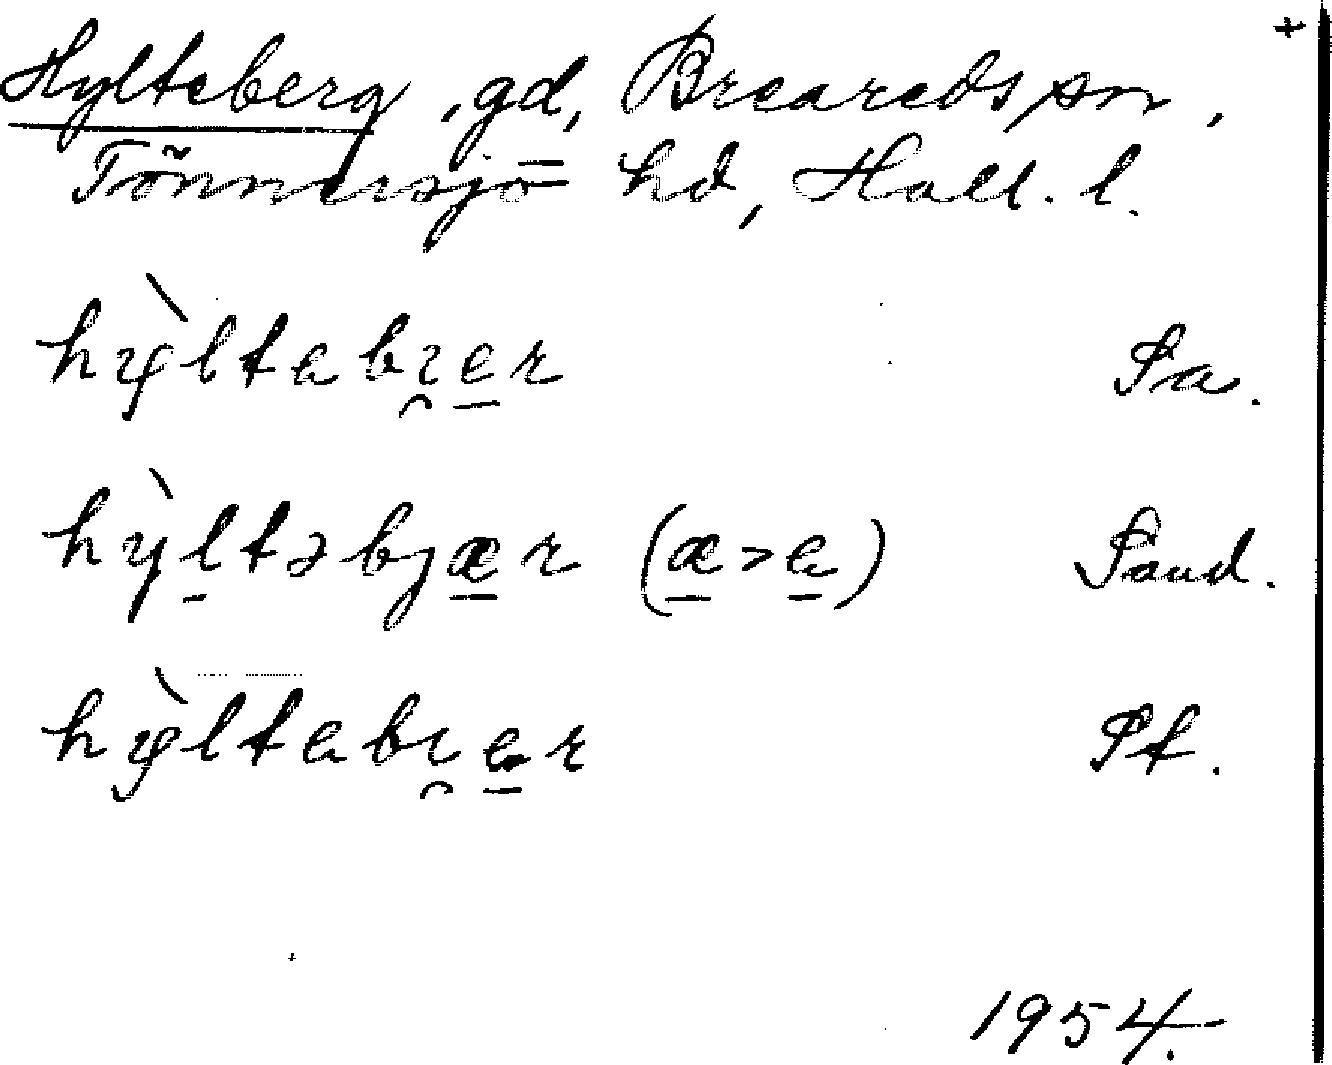 +
Hylteberg, gd, Breareds sn,
Tönnersjö hd, Hall. l.
hỳltebı̯e̲r Pa.
hỳl̲təbjæ̲r (æ̲>e̲) Paud.
hỳltebı̯e̲r Pf.
1954.